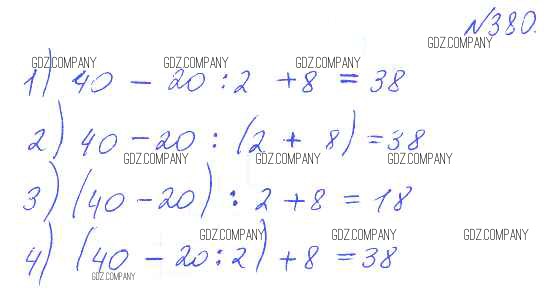 №380.
GDZ.COMPANY
GDZ.COMPANY GDZ.COMPANY GDZ.COMPANY
1) 40 - 20 : 2 + 8 = 38
2) 40 - 20 : (2 + 8) = 38
GDZ.COMPANY GDZ.COMPANY GDZ.COMPANY
3) (40 - 20) : 2 + 8 = 18
GDZ.COMPANY GDZ.COMPANY GDZ.COMPANY
4) (40 - 20 : 2) + 8 = 38
GDZ.COMPANY